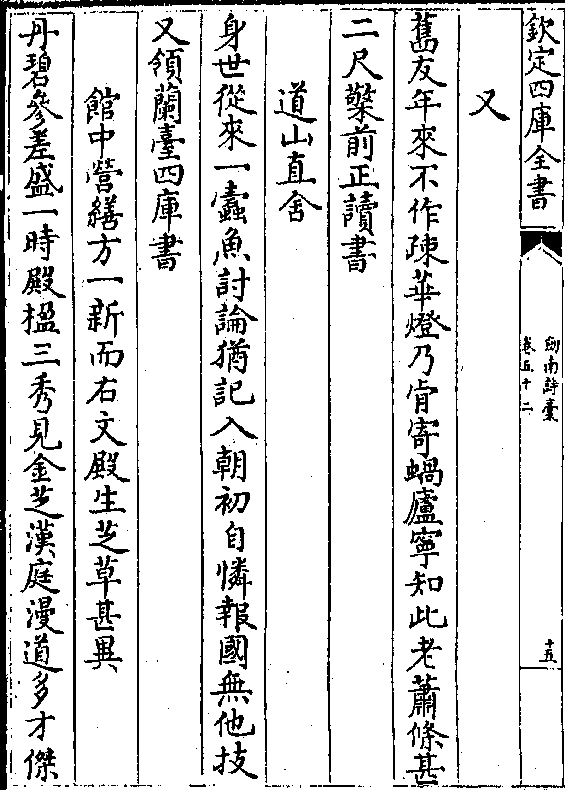 欽定四庫全書
劒南詩藁
卷五十二
十五
又
舊友年來不作疎華燈乃肯寄蝸廬寧知此老蕭條甚
二尺檠前正讀書
道山直舍
身世從來一蠹魚討論猶記入朝初自憐報國無他技
又領蘭臺四庫書
館中營繕方一新而右文殿生芝草甚異
丹碧參差盛一時殿楹三秀見金芝漢庭漫道多才傑